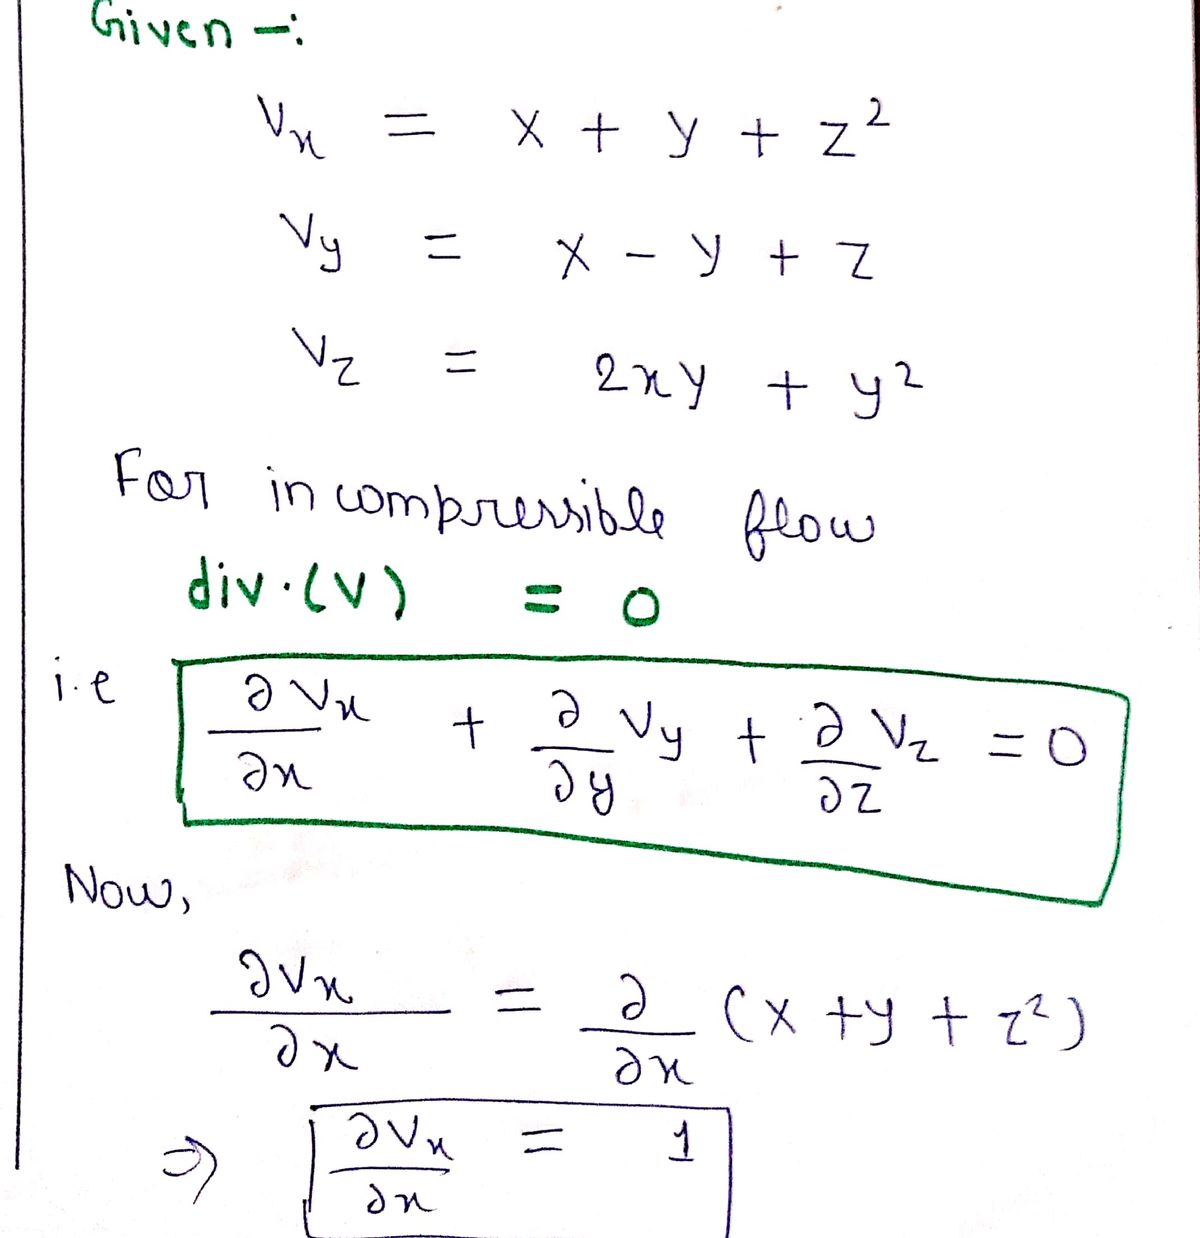 Given -:
Vx = x + y + z²
Vy = x - y + z
Vz = 2xy + y²
For incompressible flow
div.(V) = 0
i.e ∂Vx/∂x + ∂/∂y Vy + ∂/∂z Vz = 0
Now,
∂Vx/∂x = ∂/∂x (x + y + z²)
⇒ ∂Vx/∂x = 1